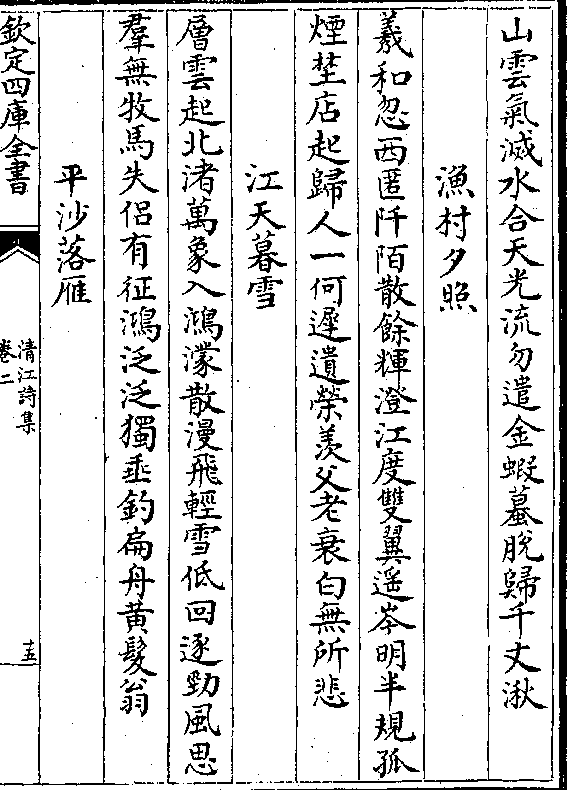 山雲氣滅水合天光流勿遣金蝦蟇脫歸千丈湫
漁村夕照
羲和忽西匿阡陌散餘輝澄江度雙翼遥岑明半規孤
煙埜店起歸人一何遲遺榮羨父老衰白無所悲
江天暮雪
層雲起北渚萬象入鴻濛散漫飛輕雪低回逐勁風思
羣無牧馬失侣有征鴻泛泛獨垂釣扁舟黄髮翁
平沙落雁
欽定四庫全書
清江詩集
卷二
十五